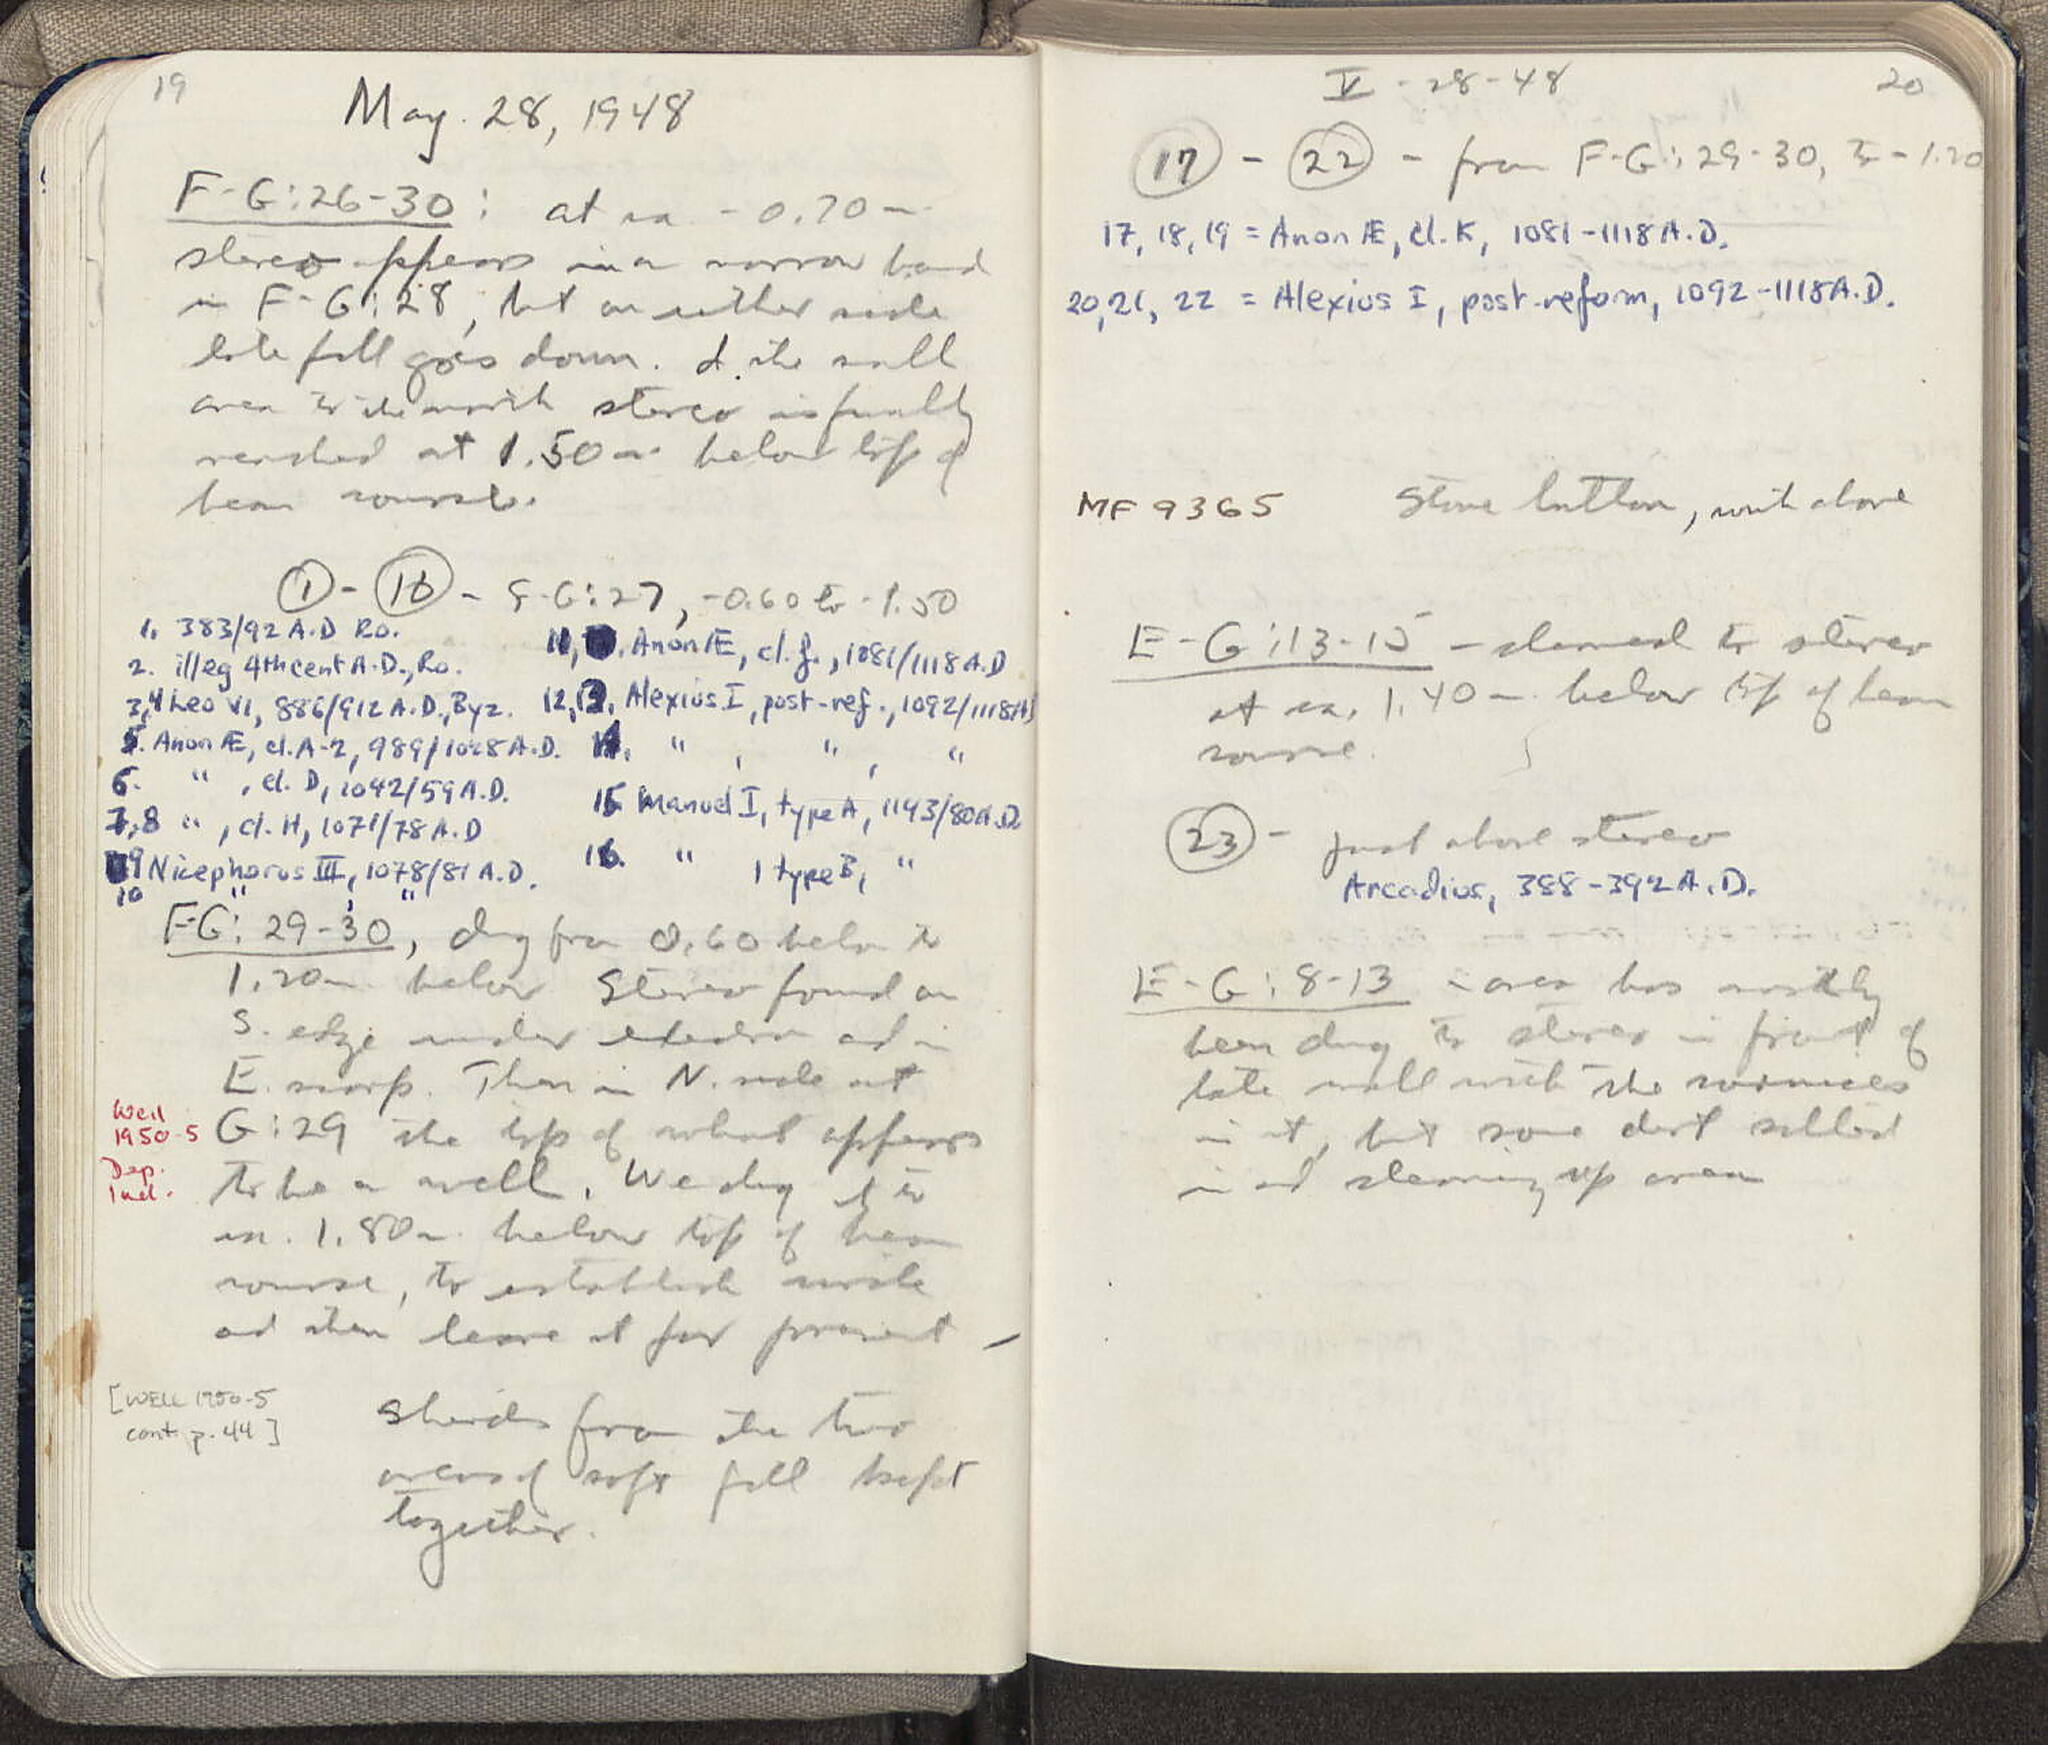 19
May. 28, 1948
F-G:26-30: at ca -0.70 m.
stereo appears in a narrow band
in F-G:28, but on either side
late fill goes down. In the small
area to the north stereo is finally
reached at 1.50 m. below top of
beam course.
① - ⑯ - F-G:27, -0.60 to -1.50
1. 383/92 A.D Ro.
2. illeg 4th cent A.D., Ro.
3,4 Leo VI, 886/912 A.D., Byz.
5. Anon Æ, cl. A-2, 989/1028 A.D.
6. " , cl. D, 1042/59 A.D.
7,8 " , cl. H, 1071/78 A.D
9 Nicephorus III, 1078/81 A.D.
10 " , "
11, Anon Æ, cl. J., 1081/1118 A.D
12,13, Alexius I, post-ref., 1092/1118 AD
14. " , " , "
15 Manuel I, type A, 1143/80 A.D.
16. " , type B, "
F-G: 29-30, dug from 0.60 below to
1.20 m. below Stereo found on
S. edge under exedra and in
E. scarp. Then in N. side at
G:29 the top of what appears
to be a well. We dug it to
ca. 1.80 m. below top of beam
course, to establish
and then leave it for present -
Well
1950-5
Dep.
Ind.
[WELL 1950-5
cont. p. 44]
Sherds from the two
areas of soft fill kept
together.
V - 28 - 48
20
⑰ - ㉒ - from F-G: 29-30, to -1.20
17, 18, 19 = Anon Æ, cl. K, 1081-1118 A.D.
20, 21, 22 = Alexius I, post-reform, 1092-1118 A.D.
MF 9365 Stone button, with above
E-G:13-15 - cleaned to stereo
at ca. 1.40 m. below top of beam
course.
㉓ - just above stereo
Arcadius, 388-392 A.D.
E-G:8-13 - area has mostly
been dug to stereo in front of
late wall with the cornices
in it, but some dirt rolled
in and cleaning up area